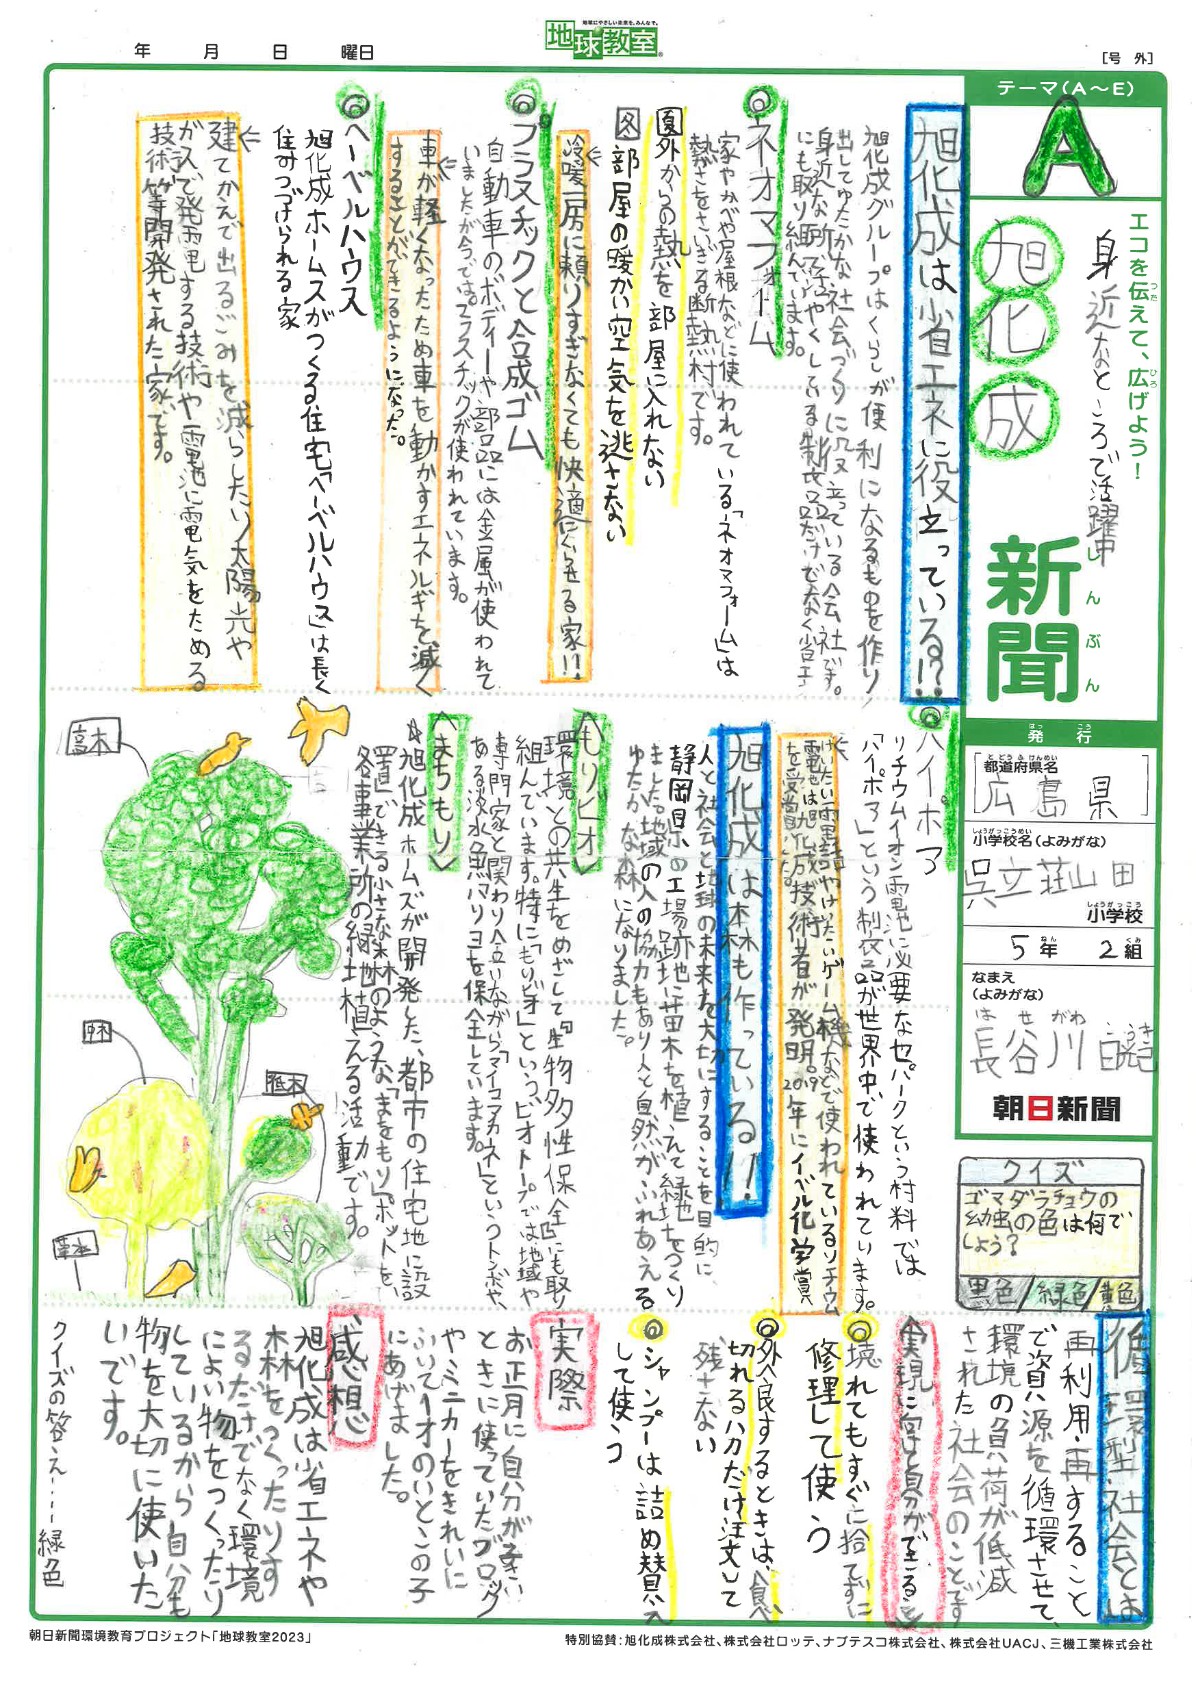 年 月 日 曜日
地球にやさしい未来を、みんなで。
地球教室
[号 外]
テーマ(A~E)
A
エコを伝えて、広げよう!
身近なところで活躍中
旭化成
新聞
しんぶん
発行
都道府県名
広島県
小学校名(よみがな)
呉立荘山田
小学校
5年 2組
なまえ
(よみがな)
はせがわ
長谷川
朝日新聞
旭化成は省エネに役立っている!?
旭化成グループはくらしが便利になるものを作り
出してゆたかな社会づくりに役立っている会社です。
身近な所で活やくしている製品だけでなく省エネ
にも取り組んでいます。
◎ネオマフォーム
家やかべや屋根などに使われている「ネオマフォーム」は
熱さをさいぎる断熱材です。
夏 外からの熱を部屋に入れない
冬 部屋の暖かい空気を逃さない
冷暖房に頼りすぎなくても快適にくらせる家!!
◎プラスチックと合成ゴム
自動車のボディーや部品には金属が使われて
いましたが今では。プラスチックが使われています。
車が軽くなったため車を動かすエネルギを減く
することができるようになった。
◎ヘーベルハウス
旭化成ホームスがつくる住宅「ヘーベルハウス」は長く
住みつづけられる家
建てかえで出るごみを減らしたり太陽光や
ガスで発電する技術や電池に電気をためる
技術等開発された家です。
◎ハイポア
リチウムイオン電池に必要なセパレークという材料では
「ハイポア」という製品が世界中で使われています。
けいたい電話やけいたいゲーム機などで使われているリチウム
電池は旭化成の技術者が発明。2019年にノーベル化学賞
を受賞しました。
旭化成は森も作っている!!
人と社会と地球の未来を大切にすることを目的に
静岡県の工場跡地に苗木を植えて緑地をつくり
ました。地域の人の協力もあり人と自然がふれあえる
ゆたかな森になりました。
〈もりビオ〉
環境との共生をめざして「生物多性保全」にも取り
組んでいます。特に「もりビオ」という、ビオトープでは地域や
専門家と関わり合いながら「マイコアカネ」というトンボや、
ある淡水魚カワバタモロコを保全しています。
〈まちもり〉
旭化成ホームズが開発した、都市の住宅地に設
置できる小さな森のような「まちもり」ポットを
各事業所の緑地に植える活動です。
高木
中木
低木
草本
クイズ
ゴマダラチョウの
幼虫の色は何で
しょう?
黒色/緑色/黄色
循環型社会とは
再利用・再すること
で資源を循環させて、
環境の負荷が低減
された社会のことです
実現に向け自分ができること
◎壊れてもすぐに捨てずに
修理して使う
◎外食するときは、食べ
切れるカだけ注文して
残さない
◎シャンプーは詰め替え
して使う
実際
お正月に自分が小さい
ときに使っていたブロック
やミニカーをきれいに
ふいて1才のいとこの子
にあげました。
感想
旭化成は省エネや
森をつくったりす
るだけでなく環境
によい物をつくったり
しているから自分も
物を大切に使いた
いです。
クイズの答え…緑色
朝日新聞環境教育プロジェクト「地球教室2023」
特別協賛:旭化成株式会社、株式会社ロッテ、ナブテスコ株式会社、株式会社UACJ、三機工業株式会社